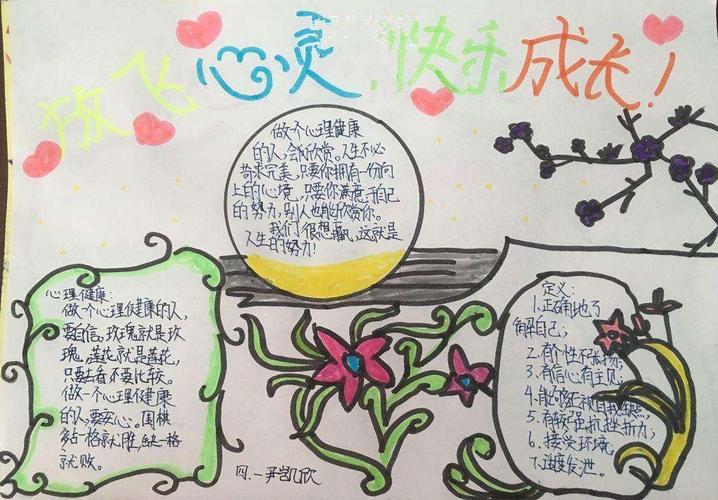 放飞心灵,快乐成长!
做个心理健康
的人,会欣赏。人生不必
苛求完美,只要你拥有一份向
上的心境,只要你满意于自己
的努力,别人也能欣赏你。
我们很想赢,这就是
人生的努力!
心理健康:
做个心理健康的人,
要自信,玫瑰就是玫
瑰,莲花就是莲花,
只要去看不要比较。
做一个心理健康
的人,要安心。围棋
多占一格就胜,缺一格
就败。
定义:
1.正确地了
解自己;
2.有个性不张扬;
3.有信心有主见;
4.能够正视自我缺点;
5.有较强抗挫折力;
6.接受环境,
7.适度发泄.
四.一 尹凯欣